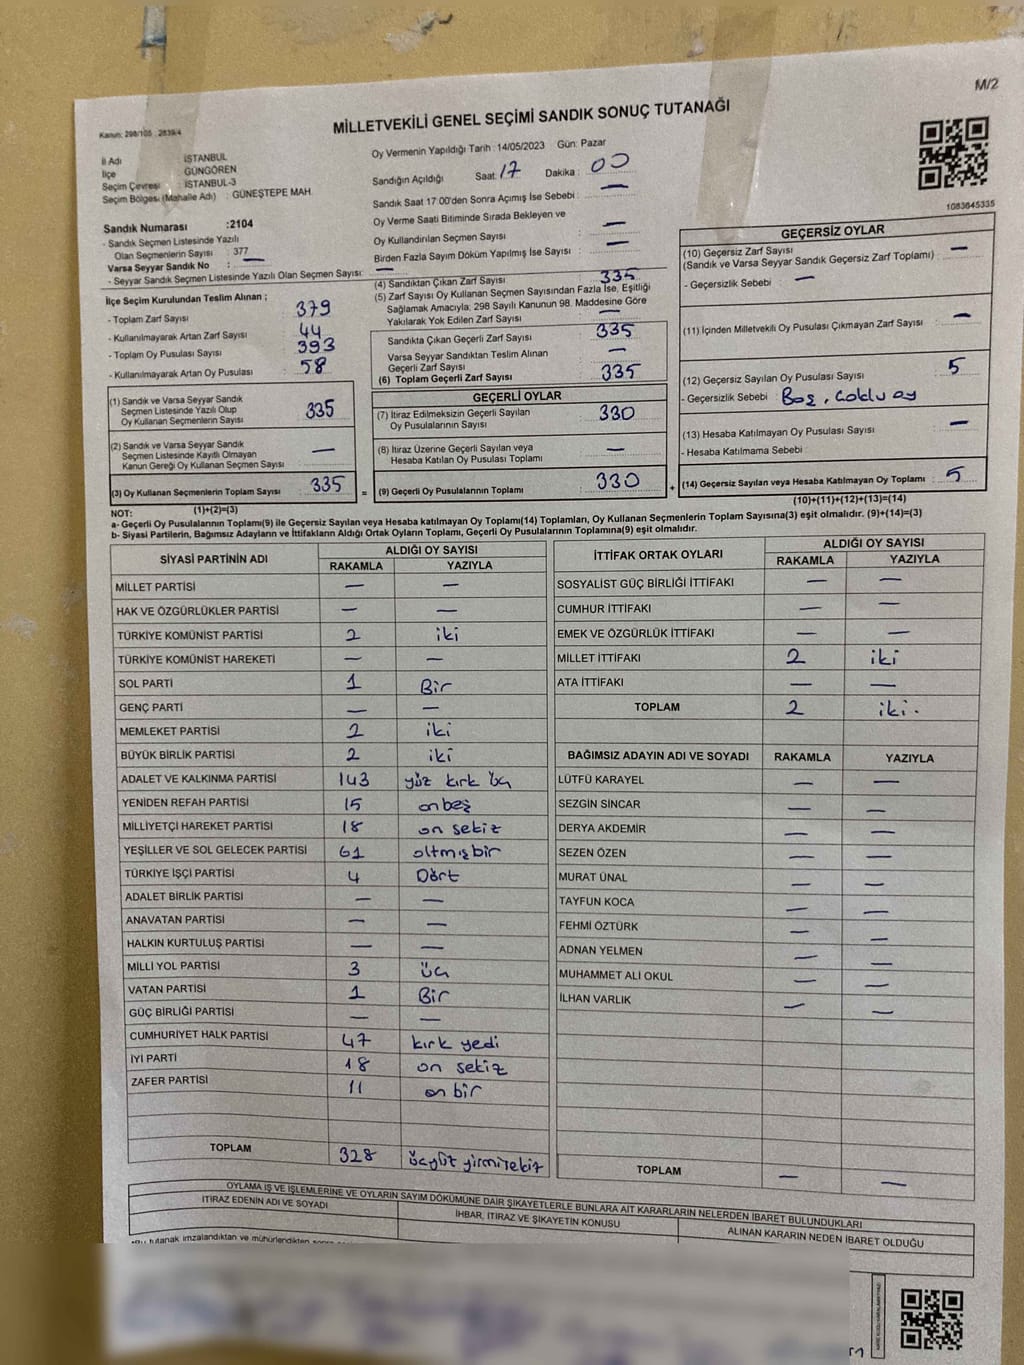 M/2
Kanun: 298/105 , 2839/4
MİLLETVEKİLİ GENEL SEÇİMİ SANDIK SONUÇ TUTANAĞI
İl Adı : İSTANBUL
İlçe : GÜNGÖREN
Seçim Çevresi : İSTANBUL-3
Seçim Bölgesi (Mahalle Adı) : GÜNEŞTEPE MAH.
Oy Vermenin Yapıldığı Tarih : 14/05/2023 Gün: Pazar
Sandığın Açıldığı Saat: 17 Dakika : 00
Sandık Saat 17:00'den Sonra Açımış İse Sebebi : —
Oy Verme Saati Bitiminde Sırada Bekleyen ve
Oy Kullandırılan Seçmen Sayısı : —
Birden Fazla Sayım Döküm Yapılmış İse Sayısı : —
1083645335
Sandık Numarası :2104
- Sandık Seçmen Listesinde Yazılı
Olan Seçmenlerin Sayısı : 377
Varsa Seyyar Sandık No : —
- Seyyar Sandık Seçmen Listesinde Yazılı Olan Seçmen Sayısı: —
İlçe Seçim Kurulundan Teslim Alınan ;
- Toplam Zarf Sayısı : 379
- Kullanılmayarak Artan Zarf Sayısı : 44
- Toplam Oy Pusulası Sayısı : 393
- Kullanılmayarak Artan Oy Pusulası : 58
(1) Sandık ve Varsa Seyyar Sandık
Seçmen Listesinde Yazılı Olup
Oy Kullanan Seçmenlerin Sayısı : 335
(2) Sandık ve Varsa Seyyar Sandık
Seçmen Listesinde Kayıtlı Olmayan
Kanun Gereği Oy Kullanan Seçmen Sayısı : —
(3) Oy Kullanan Seçmenlerin Toplam Sayısı : 335 =
(1)+(2)=(3)
(4) Sandıktan Çıkan Zarf Sayısı : 335
(5) Zarf Sayısı Oy Kullanan Seçmen Sayısından Fazla İse, Eşitliği
Sağlamak Amacıyla, 298 Sayılı Kanunun 98. Maddesine Göre
Yakılarak Yok Edilen Zarf Sayısı : —
Sandıkta Çıkan Geçerli Zarf Sayısı : 335
Varsa Seyyar Sandıktan Teslim Alınan
Geçerli Zarf Sayısı : —
(6) Toplam Geçerli Zarf Sayısı : 335
GEÇERLİ OYLAR
(7) İtiraz Edilmeksizin Geçerli Sayılan
Oy Pusulalarının Sayısı : 330
(8) İtiraz Üzerine Geçerli Sayılan veya
Hesaba Katılan Oy Pusulası Toplamı : —
(9) Geçerli Oy Pusulalarının Toplamı : 330 +
GEÇERSİZ OYLAR
(10) Geçersiz Zarf Sayısı : —
(Sandık ve Varsa Seyyar Sandık Geçersiz Zarf Toplamı)
- Geçersizlik Sebebi : —
(11) İçinden Milletvekili Oy Pusulası Çıkmayan Zarf Sayısı : —
(12) Geçersiz Sayılan Oy Pusulası Sayısı : 5
- Geçersizlik Sebebi : Boş,
(13) Hesaba Katılmayan Oy Pusulası Sayısı : —
- Hesaba Katılmama Sebebi :
(14) Geçersiz Sayılan veya Hesaba Katılmayan Oy Toplamı : 5
(10)+(11)+(12)+(13)=(14)
NOT:
a- Geçerli Oy Pusulasının Toplamı(9) ile Geçersiz Sayılan veya Hesaba katılmayan Oy Toplamı(14) Toplamları, Oy Kullanan Seçmenlerin Toplam Sayısına(3) eşit olmalıdır. (9)+(14)=(3)
b- Siyasi Partilerin, Bağımsız Adayların ve İttifakların Aldığı Ortak Oyların Toplamı, Geçerli Oy Pusulalarının Toplamına(9) eşit olmalıdır.
SİYASİ PARTİNİN ADI ALDIĞI OY SAYISI
RAKAMLA YAZIYLA
MİLLET PARTİSİ — —
HAK VE ÖZGÜRLÜKLER PARTİSİ — —
TÜRKİYE KOMÜNİST PARTİSİ 2 iki
TÜRKİYE KOMÜNİST HAREKETİ — —
SOL PARTİ 1 Bir
GENÇ PARTİ — —
MEMLEKET PARTİSİ 2 iki
BÜYÜK BİRLİK PARTİSİ 2 iki
ADALET VE KALKINMA PARTİSİ 143 yüz kırk üç
YENİDEN REFAH PARTİSİ 15 onbeş
MİLLİYETÇİ HAREKET PARTİSİ 18 on sekiz
YEŞİLLER VE SOL GELECEK PARTİSİ 61 altmışbir
TÜRKİYE İŞÇİ PARTİSİ 4 Dört
ADALET BİRLİK PARTİSİ — —
ANAVATAN PARTİSİ — —
HALKIN KURTULUŞ PARTİSİ — —
MİLLİ YOL PARTİSİ 3 üç
VATAN PARTİSİ 1 Bir
GÜÇ BİRLİĞİ PARTİSİ — —
CUMHURİYET HALK PARTİSİ 47 kırk yedi
İYİ PARTİ 18 on sekiz
ZAFER PARTİSİ 11 on bir
TOPLAM 328 üçyüz yirmisekiz
İTTİFAK ORTAK OYLARI ALDIĞI OY SAYISI
RAKAMLA YAZIYLA
SOSYALİST GÜÇ BİRLİĞİ İTTİFAKI — —
CUMHUR İTTİFAKI — —
EMEK VE ÖZGÜRLÜK İTTİFAKI — —
MİLLET İTTİFAKI 2 iki
ATA İTTİFAKI — —
TOPLAM 2 iki.
BAĞIMSIZ ADAYIN ADI VE SOYADI RAKAMLA YAZIYLA
LÜTFÜ KARAYEL — —
SEZGİN SİNCAR — —
DERYA AKDEMİR — —
SEZEN ÖZEN — —
MURAT ÜNAL — —
TAYFUN KOCA — —
FEHMİ ÖZTÜRK — —
ADNAN YELMEN — —
MUHAMMET ALİ OKUL — —
İLHAN VARLIK — —
TOPLAM — —
OYLAMA İŞ VE İŞLEMLERİNE VE OYLARIN SAYIM DÖKÜMÜNE DAİR ŞİKAYETLERLE BUNLARA AİT KARARLARIN NELERDEN İBARET BULUNDUKLARI
İTİRAZ EDENİN ADI VE SOYADI İHBAR, İTİRAZ VE ŞİKAYETİN KONUSU ALINAN KARARIN NEDEN İBARET OLDUĞU
tutanak imzalandıktan ve mühürlendikten sonra